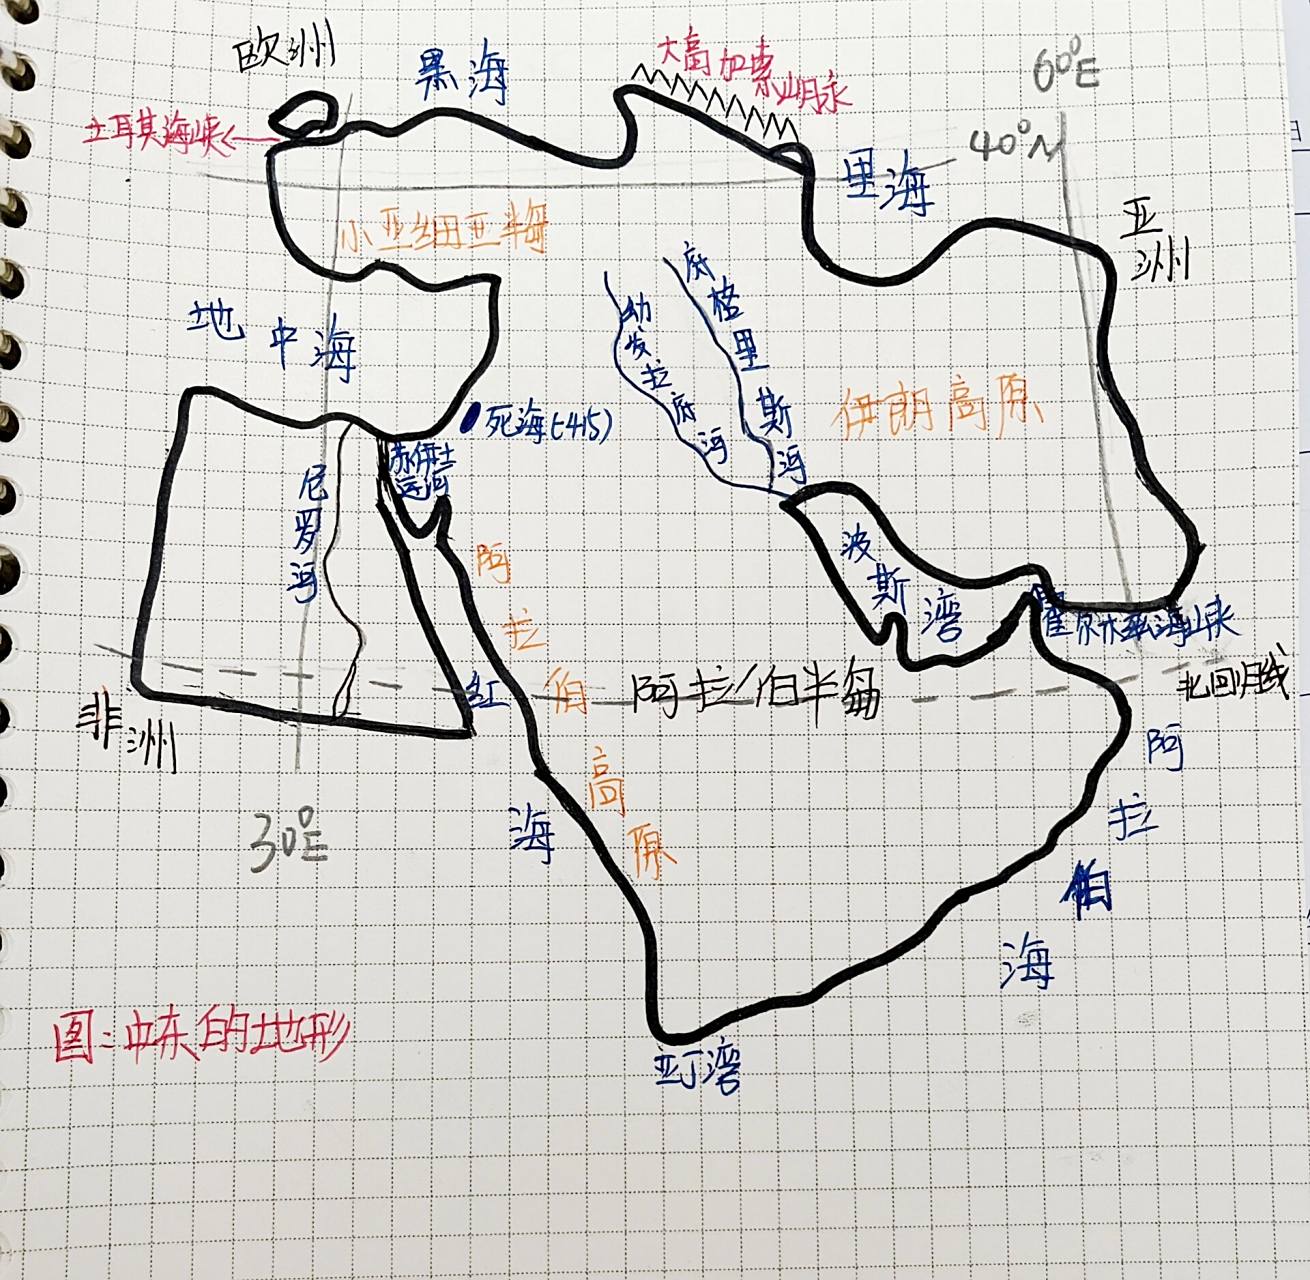 欧洲
黑海
大高加索
山脉
60°E
土耳其海峡
40°N
里海
亚洲
小亚细亚半岛
地中海
幼发拉底河
底格里斯河
伊朗高原
死海(-415)
苏伊士
运河
尼罗河
波斯湾
霍尔木兹海峡
阿拉伯高原
红海
阿拉伯半岛
北回归线
非洲
阿拉伯海
30°E
图:中东的地形
亚丁湾